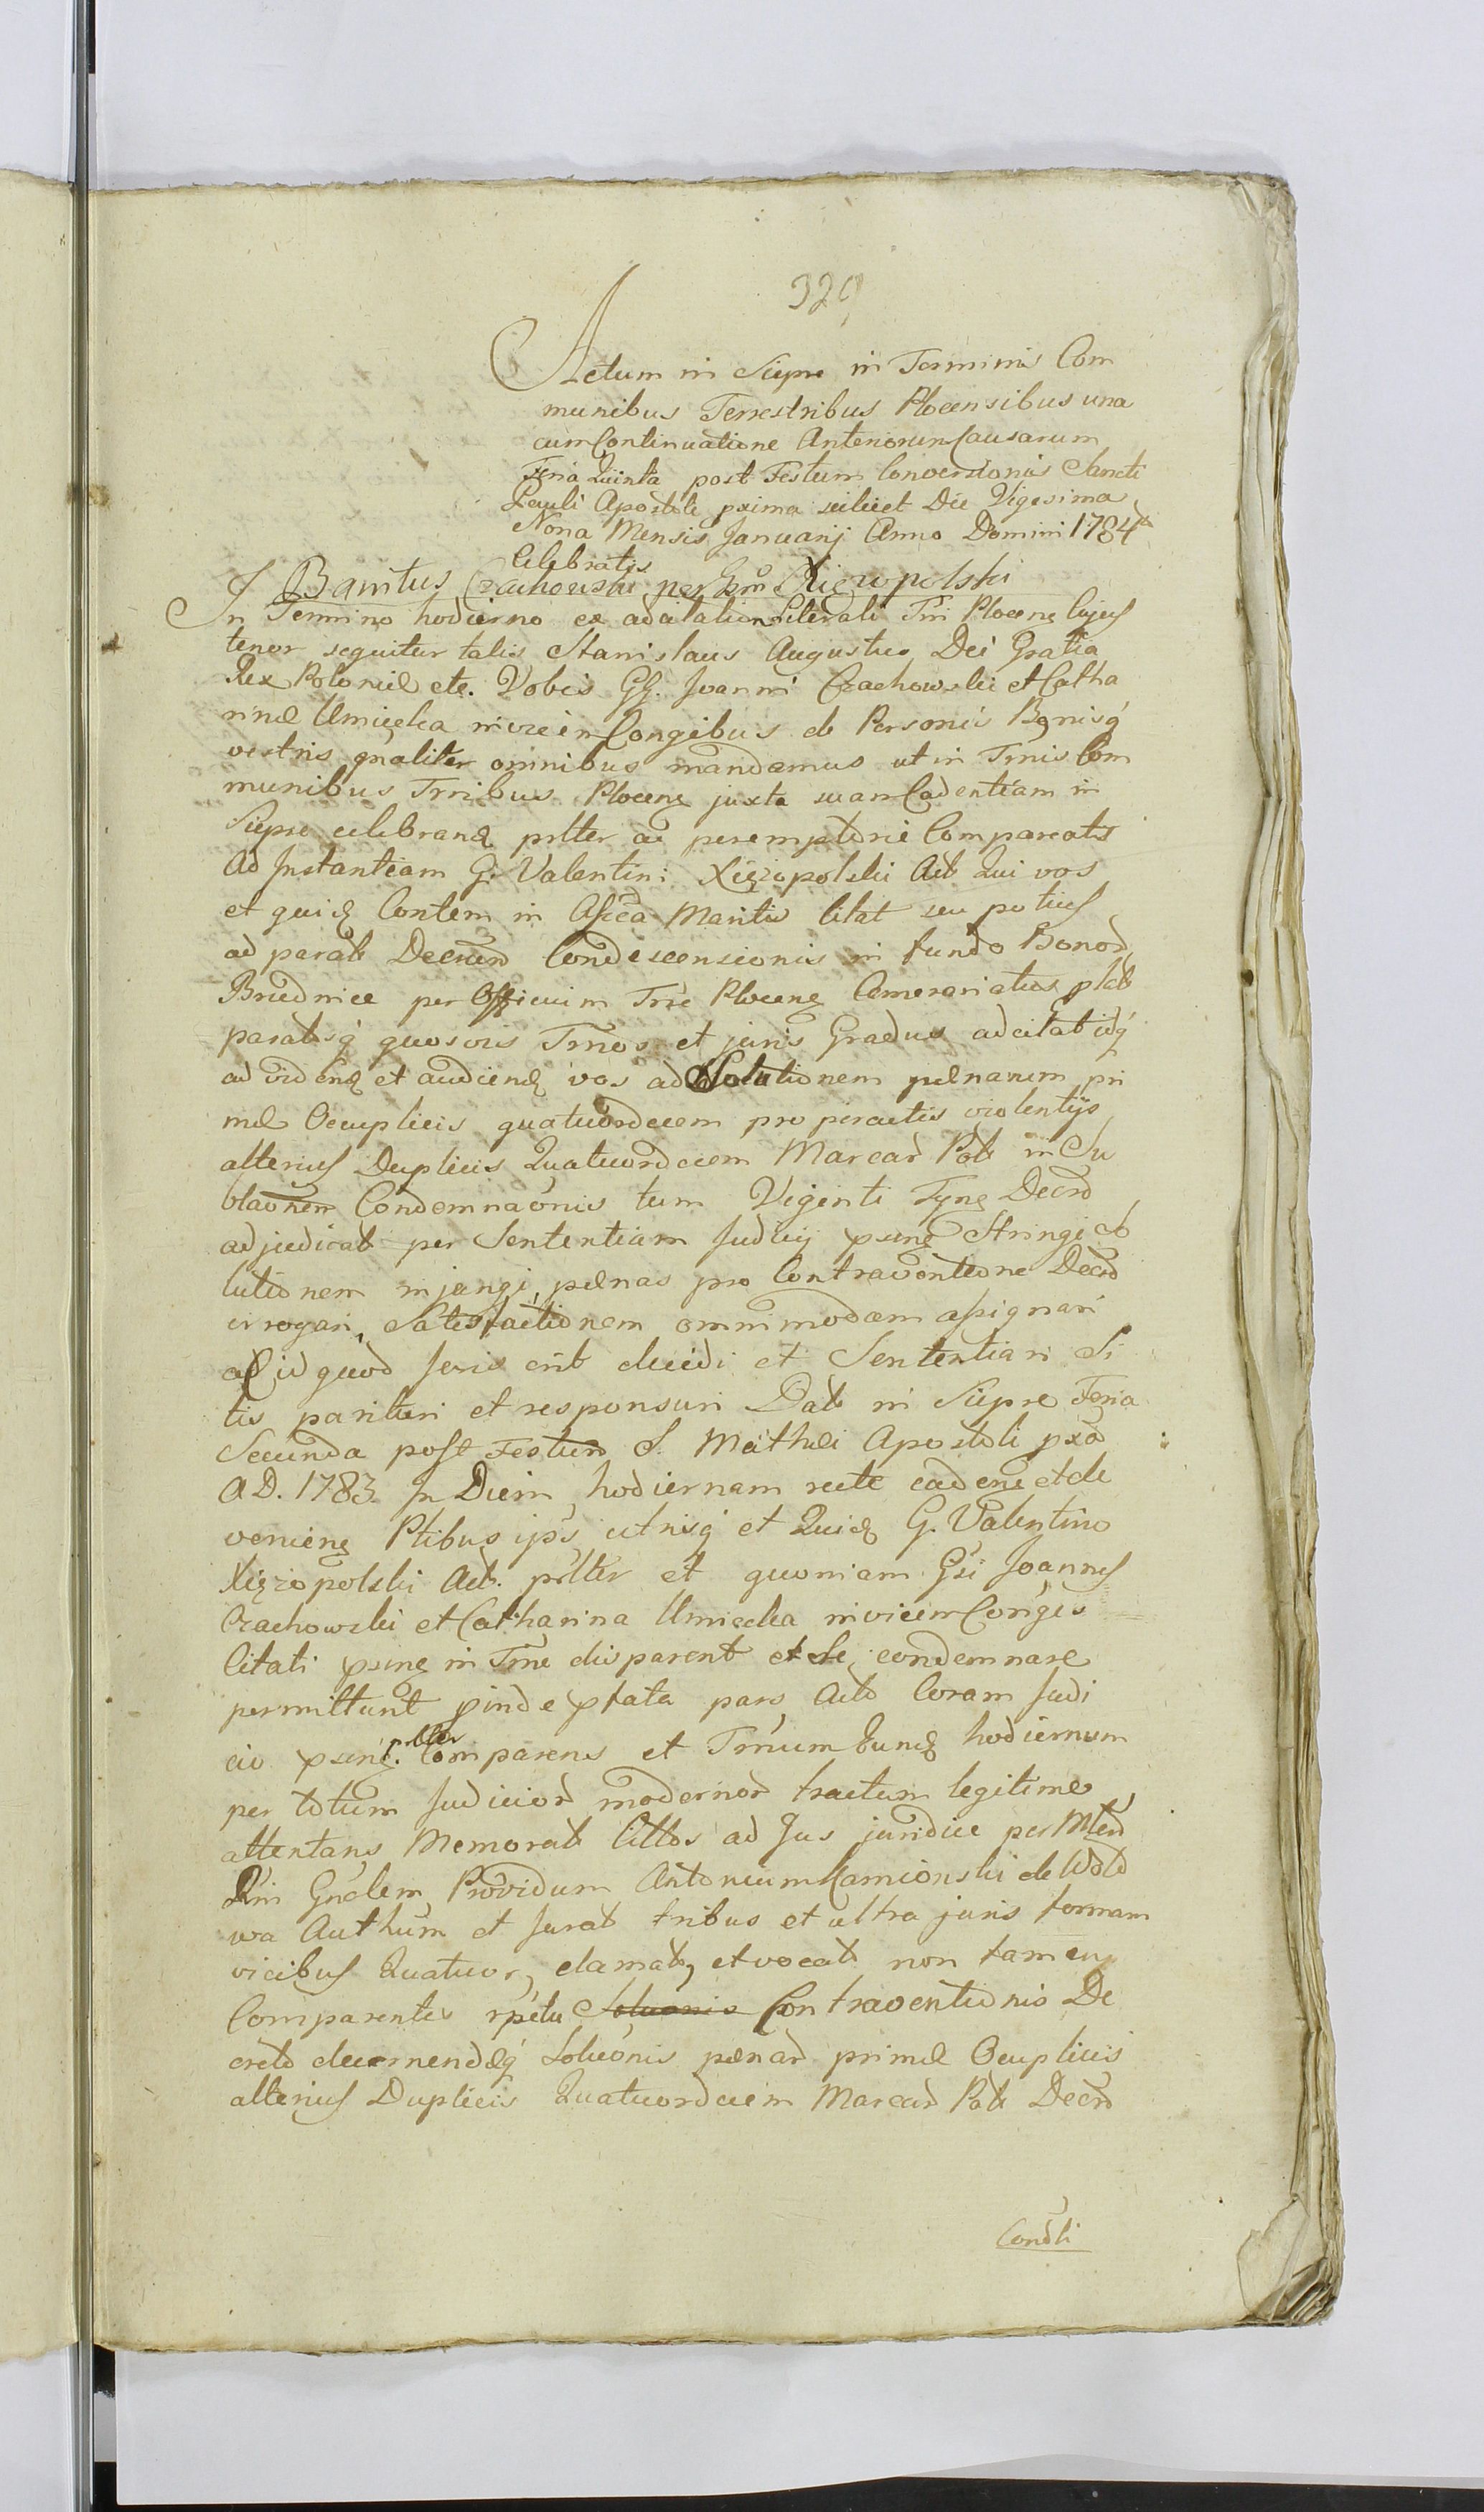 329
Actum in Siepre in Terminis Com
munibus Terrestribus Plocensibus una
cum Continuatione Anteriorum Causarum
Feria Quinta post Festum Conversionis Sancti
Pauli Apostoli pxima scilicet Die Vigesima
Nona Mensis Januarij Anno Domini 1784
Celebratis
Banitus Czachowski per Gsm Xięzopolski
In Termino hodierno ex adcitatione Literali Tri Plocens Cujus
tenor sequitur talis Stanislaus Augustus Dei Gratia
Rex Poloniæ etc. Vobis GG. Joanni Czachowski et Catha
rinæ Umięcka invicem Congibus de Personis Bonisq
vestris gnaliter omnibus mandamus ut in Trnis Com
munibus Trribus Plocens juxta suam Cadentiam in
Siepre celebrand prlter ac peremptorie Compareatis
Ad Instantiam G. Valentini Xięzopolski Act Qui vos
et quid Contem in Assa Mariti Citat seu potius
ad parat Decreto Condescensionis in fundo Bonor
Brudnice per Officium Trre Plocens Camerariatus
paratsq quosvis Trnos et juris Gradus adcitat idq
ad videnḍ et audienḍ vos ad Solutionem pœnarum pri
mæ Octuplicis quatuordecem pro peractis violentijs
alterius Duplicis Quatuordecem Marcar Pol in Su
blaonem Condemnaonis tum Viginti Decro
adjudicat per Sententiam Judicij psens Stringi So
lutionem injungi, pœnas pro Contraventione Decro
irrogari, Satisfactionem omnimodam assignari
ac id quod Juris erit decidi et Sententiari Si
tis parituri et responsuri Dat in Siepre Feria
Secunda post Festum S. Mathei Apostoli pxa
A D. 1783 In Diem hodiernam recte caden et de
venien Ptibus ipis utrisq et Quid G. Valentino
Xięzopolski Act. prlter et quoniam Gsi Joannes
Czachowski et Catharina Umiecka invicem Conges
Citati psens in Trno disparent et se condemnare
permittunt pinde ptata pars Acto Coram Judi
cio psens. prlter Comparens et Trnum hunc hodiernum
per totum Judicior modernor tractum legitime
attentans Memorat Cittos ad Jus juridice per Mtrem
Rni Gnalem Providum Antonium Kamionski de
wa Authum et Jurat tribus et ultra juris formam
vicibus Quatuor, clamat, et vocat non tamen
Comparentes rpctu Soluonis Contraventionis De
creto decernendæq Soluonis pœnar primæ Octuplicis
alterius Duplicis Quatuordecem Marcar Pol Decro
Condli